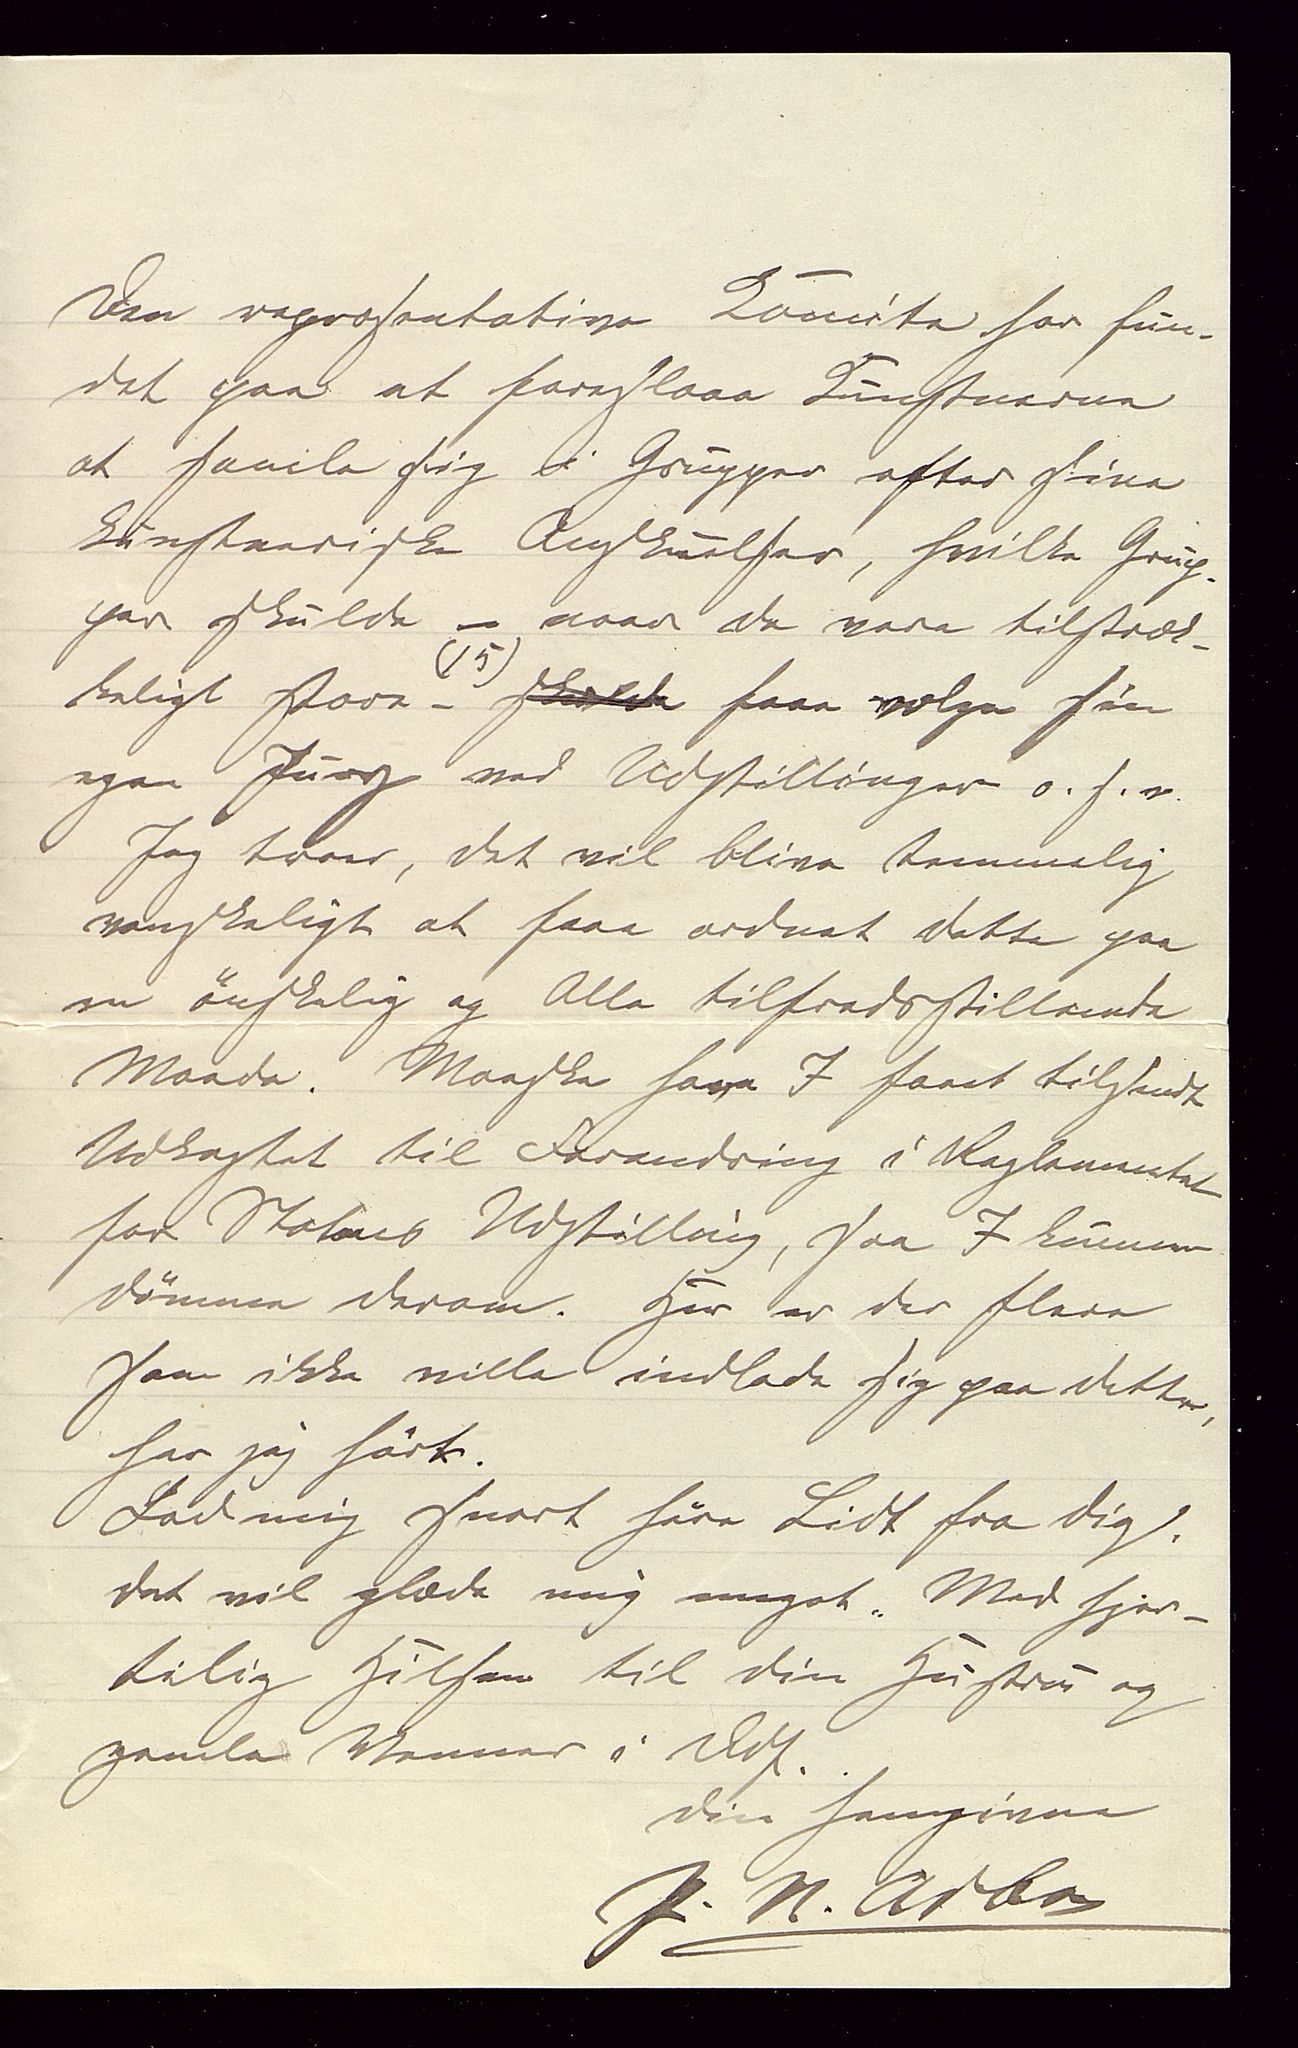 Den repræsentative Komite har fun-
det paa at foreslaaa Kunstnerne
at samle sig i Grupper efter sine
kunstneriske Anskuelser, hvilke Grup-
per skulde – naar de vare tilstræk-
keligt store (15) – skulde faaa vælge sin
egen Jury ved Udstillinger o. s. v.
Jeg troer, det vil blive temmelig
vanskeligt at faaa ordnet dette paa
en önskelig og Alle tilfredsstillende
Maade. Maaske have I faaet tilsendt
Udkastet til Forandring i Reglementet
for Statens Udstilling, saa I kunne
dömme derom. Her er der flere
som ikke ville indlade sig paa dette,
har jeg hört.
Lad mig snart höre Lidt fra dig!
det vil glæde mig meget. Med hjer-
telig Hilsen til din Hustru og
gamle Venner i Ddf.
din hengivne
P. N. Arbo